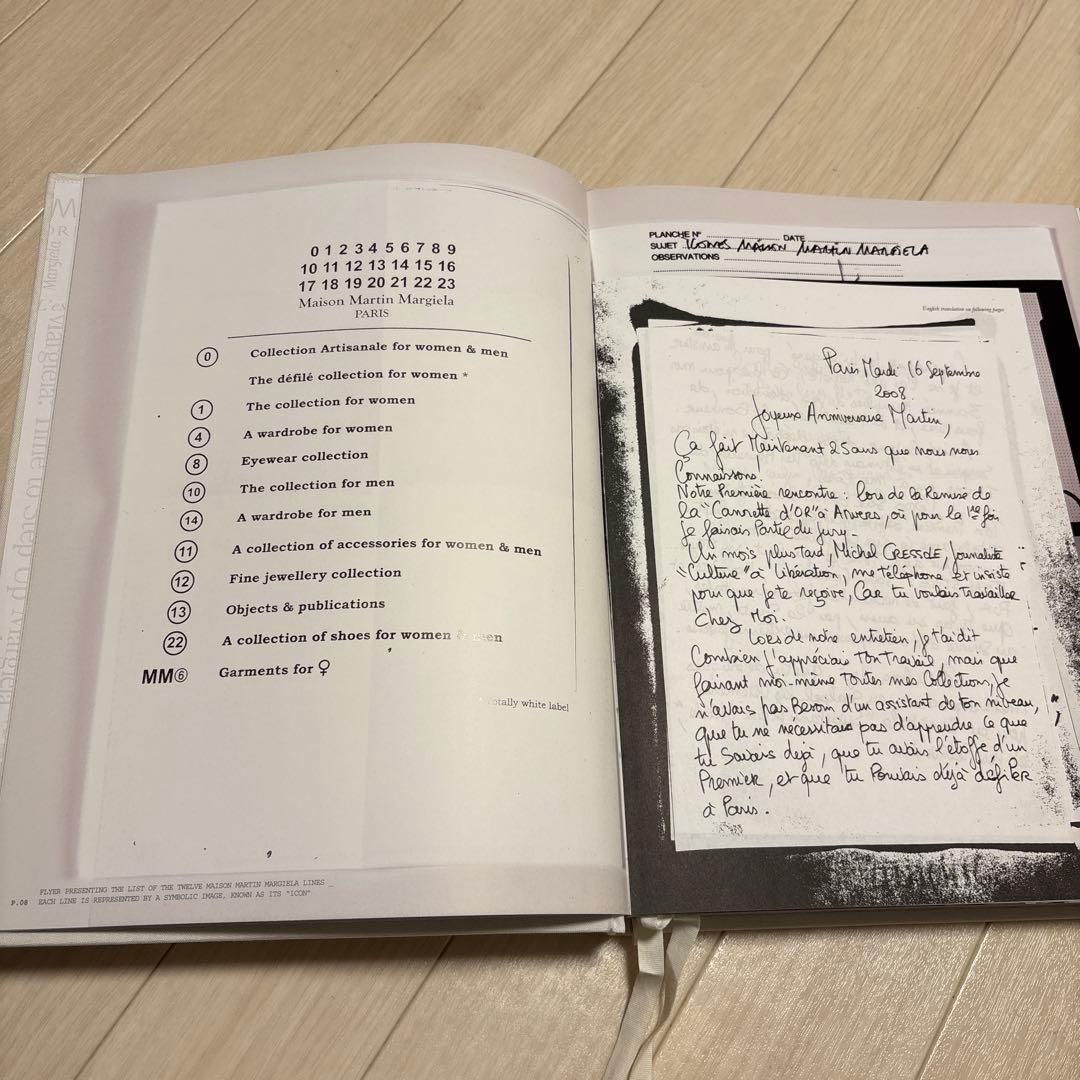 0 1 2 3 4 5 6 7 8 9
10 11 12 13 14 15 16
17 18 19 20 21 22 23
Maison Martin Margiela
PARIS
0 Collection Artisanale for women & men
The défilé collection for women *
1 The collection for women
4 A wardrobe for women
8 Eyewear collection
10 The collection for men
14 A wardrobe for men
11 A collection of accessories for women & men
12 Fine jewellery collection
13 Objects & publications
22 A collection of shoes for women & men
MM⑥ Garments for ♀
* Totally white label
FLYER PRESENTING THE LIST OF THE TWELVE MAISON MARTIN MARGIELA LINES _
P.08 EACH LINE IS REPRESENTED BY A SYMBOLIC IMAGE, KNOWN AS ITS "ICON"
PLANCHE N° DATE
SUJET MAISON MARTIN MARGIELA
OBSERVATIONS
English translation on following pages
Paris Mardi 16 Septembre
2008.
Joyeux Anniversaire Martin,
Ça fait Maintenant 25 ans que nous nous
Connaissons.
Notre Première rencontre : lors de la Remise de
la "Cannette d'OR" à Anvers, où pour la 1ère fois
Je faisais Partie du Jury_
Un mois plus tard, Michel CRESSOLE, Journaliste
"Culture" à Libération, me téléphone et insiste
pour que je te reçoive, Car tu voulais travailler
Chez Moi.
Lors de notre entretien, je t'ai dit
Combien j'appréciais Ton travail, mais que
faisant moi-même toutes mes Collections, Je
n'avais pas Besoin d'un assistant de ton niveau,
que tu ne nécessitais pas d'apprendre ce que
tu Savais déjà, que tu avais l'étoffe d'un
Premier, et que tu Pouvais déjà défiler
à Paris.